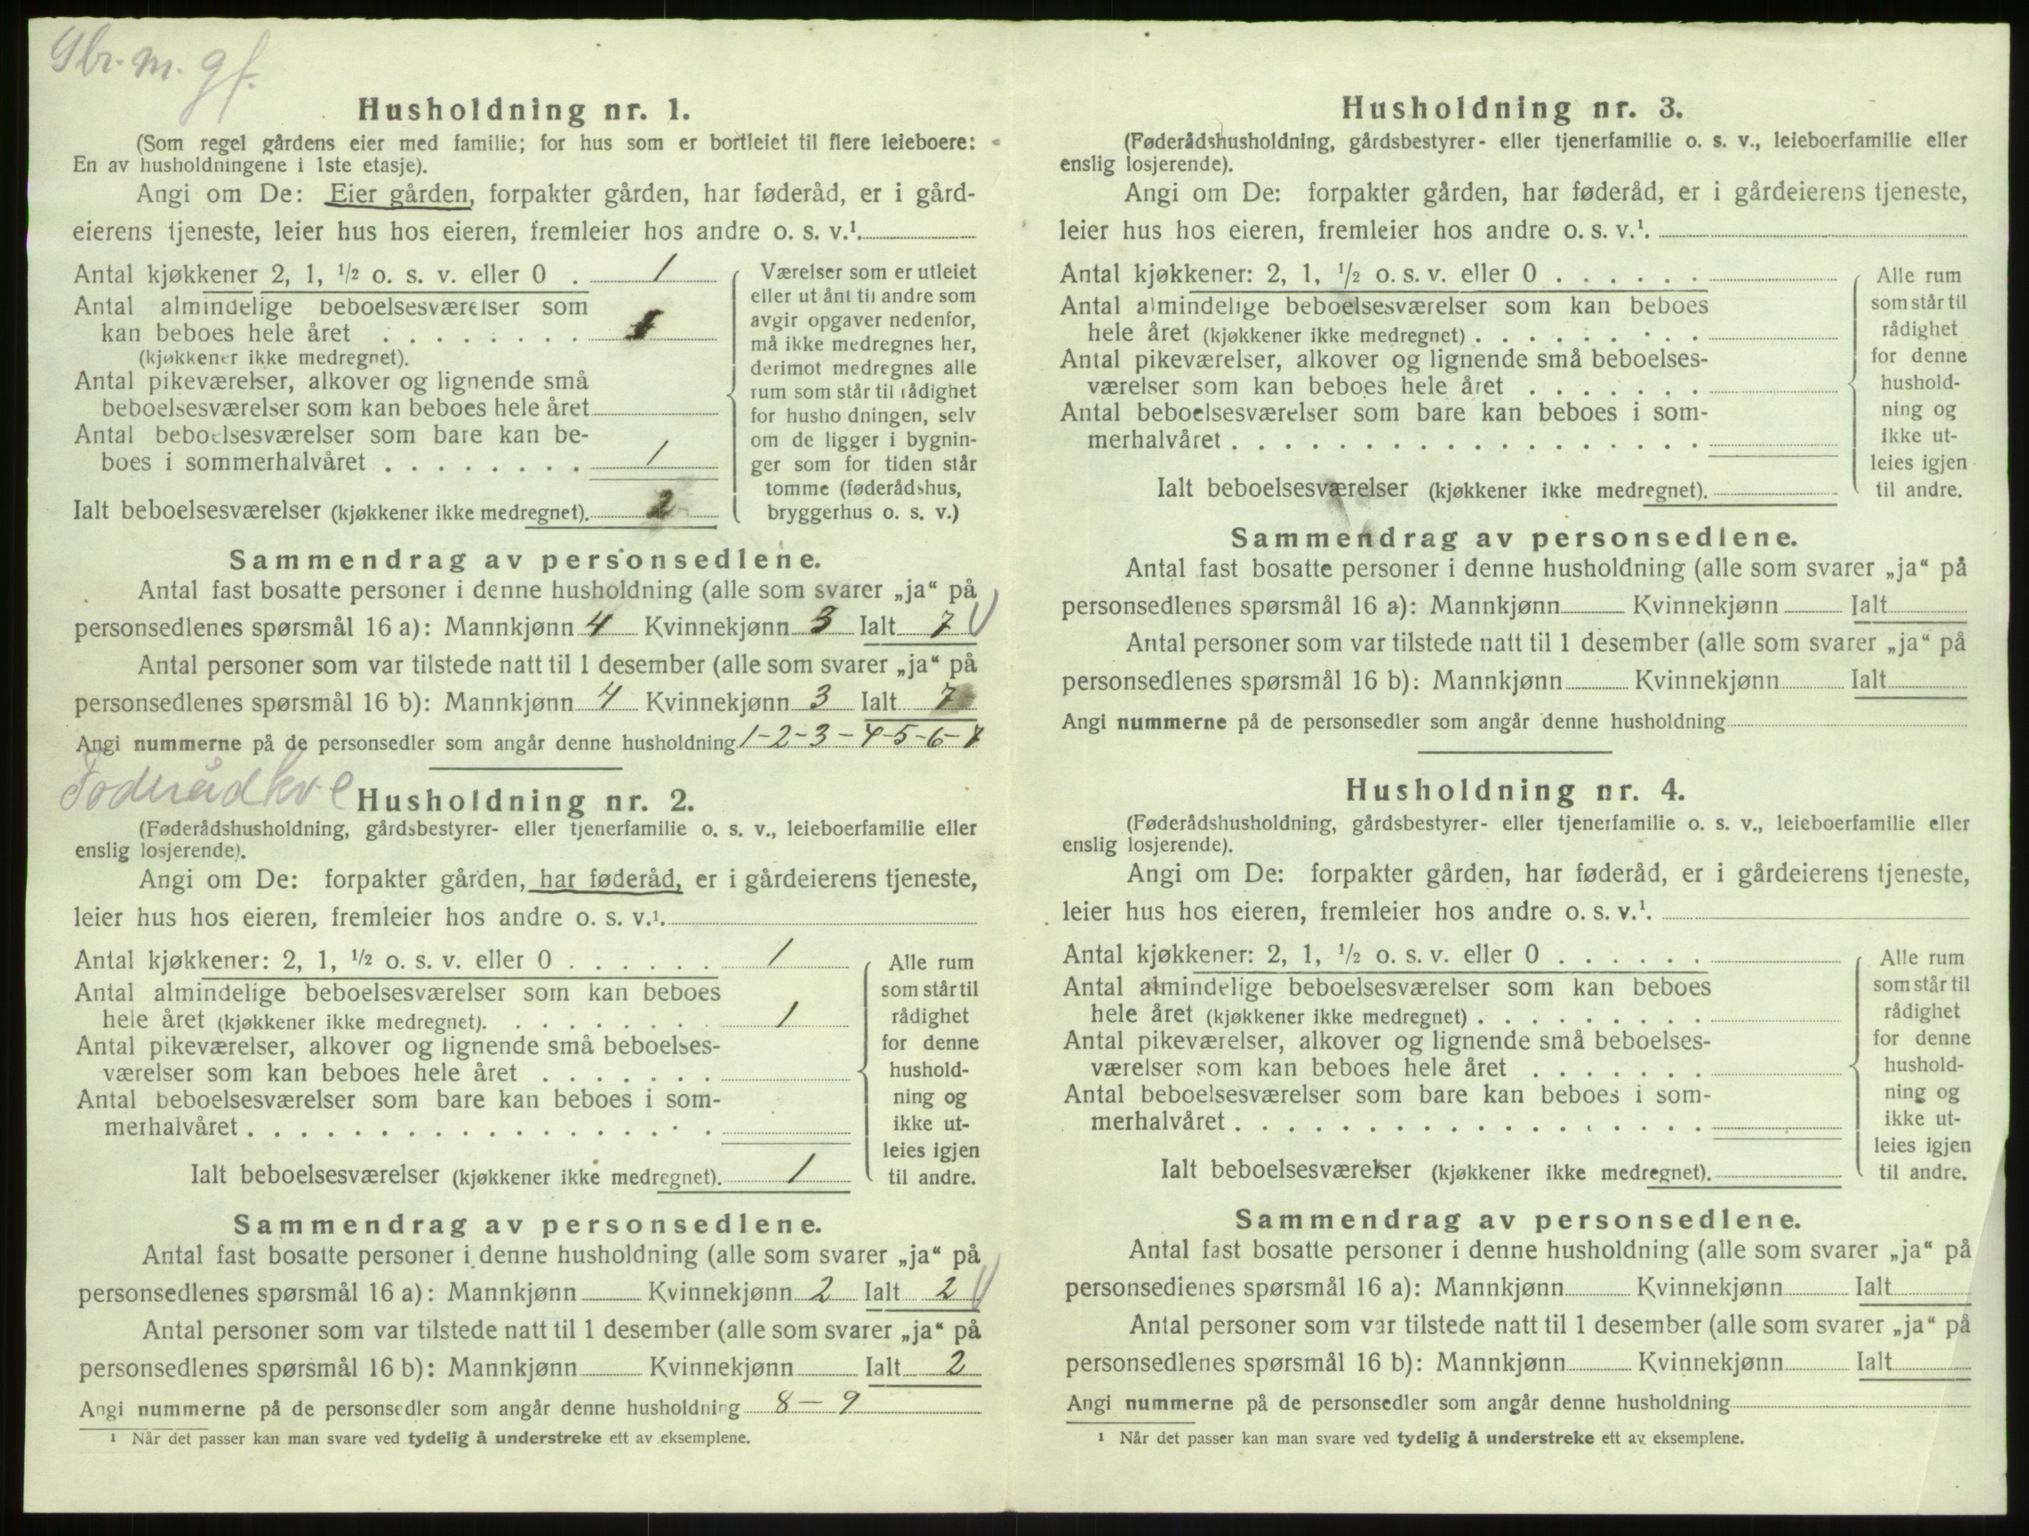 Gbr. m. gf.
Husholdning nr. 1.
(Som regel gårdens eier med familie; for hus som er bortleiet til flere leieboere:
En av husholdningene i 1ste etasje).
Angi om De: Eier gården, forpakter gården, har føderåd, er i gård-
eierens tjeneste, leier hus hos eieren, fremleier hos andre o. s. v.¹.
Antal kjøkkener 2, 1, ½ o. s. v. eller 0 . 1
Antal almindelige beboelsesværelser som
kan beboes hele året . . . . . . . . 1
(kjøkkener ikke medregnet).
Antal pikeværelser, alkover og lignende små
beboelsesværelser som kan beboes hele året
Antal beboelsesværelser som bare kan be-
boes i sommerhalvåret . . . . . . . . 1
Ialt beboelsesværelser (kjøkkener ikke medregnet). 2
Værelser som er utleiet
eller utlånt til andre som
avgir opgaver nedenfor,
må ikke medregnes her,
derimot medregnes alle
rum som står til rådighet
for husholdningen, selv
om de ligger i bygnin-
ger som for tiden står
tomme (føderådshus,
bryggerhus o. s. v.)
Sammendrag av personsedlene.
Antal fast bosatte personer i denne husholdning (alle som svarer „ja“ på
personsedlenes spørsmål 16 a): Mannkjønn 4 Kvinnekjønn 3 Ialt 7
Antal personer som var tilstede natt til 1 desember (alle som svarer „ja“ på
personsedlenes spørsmål 16 b): Mannkjønn 4 Kvinnekjønn 3 Ialt 7
Angi nummerne på de personsedler som angår denne husholdning 1-2-3-4-5-6-7
Føderådkve
Husholdning nr. 2.
(Føderådshusholdning, gårdsbestyrer- eller tjenerfamilie o. s. v., leieboerfamilie eller
enslig losjerende).
Angi om De: forpakter gården, har føderåd, er i gårdeierens tjeneste,
leier hus hos eieren, fremleier hos andre o. s. v.¹.
Antal kjøkkener: 2, 1, ½ o. s. v. eller 0 . . . . . . 1
Antal almindelige beboelsesværelser som kan beboes
hele året (kjøkkener ikke medregnet). . . . . . . . . 1
Antal pikeværelser, alkover og lignende små beboelses-
værelser som kan beboes hele året . . . . . . .
Antal beboelsesværelser som bare kan beboes i som-
merhalvåret . . . . . . . . . . . . . . . . . .
Ialt beboelsesværelser (kjøkkener ikke medregnet). 1
Alle rum
som står til
rådighet
for denne
hushold-
ning og
ikke ut-
leies igjen
til andre.
Sammendrag av personsedlene.
Antal fast bosatte personer i denne husholdning (alle som svarer „ja“ på
personsedlenes spørsmål 16 a): Mannkjønn Kvinnekjønn 2 Ialt 2
Antal personer som var tilstede natt til 1 desember (alle som svarer „ja“ på
personsedlenes spørsmål 16 b): Mannkjønn Kvinnekjønn Ialt 2
Angi nummerne på de personsedler som angår denne husholdning 8-9
¹ Når det passer kan man svare ved tydelig å understreke ett av eksemplene.
Husholdning nr. 3.
(Føderådshusholdning, gårdsbestyrer- eller tjenerfamilie o. s. v., leieboerfamilie eller
enslig losjerende).
Angi om De: forpakter gården, har føderåd, er i gårdeierens tjeneste,
leier hus hos eieren, fremleier hos andre o. s. v.¹.
Antal kjøkkener: 2, 1, ½ o. s. v. eller 0 . . . . . .
Antal almindelige beboelsesværelser som kan beboes
hele året (kjøkkener ikke medregnet) . . . . . . . . .
Antal pikeværelser, alkover og lignende små beboelses-
værelser som kan beboes hele året . . . . . . .
Antal beboelsesværelser som bare kan beboes i som-
merhalvåret . . . . . . . . . . . . . . . . . .
Ialt beboelsesværelser (kjøkkener ikke medregnet).
Alle rum
som står til
rådighet
for denne
hushold-
ning og
ikke ut-
leies igjen
til andre.
Sammendrag av personsedlene.
Antal fast bosatte personer i denne husholdning (alle som svarer „ja“ på
personsedlenes spørsmål 16 a): Mannkjønn Kvinnekjønn Ialt
Antal personer som var tilstede natt til 1 desember (alle som svarer „ja“ på
personsedlenes spørsmål 16 b): Mannkjønn Kvinnekjønn Ialt
Angi nummerne på de personsedler som angår denne husholdning
Husholdning nr. 4.
(Føderådshusholdning, gårdsbestyrer- eller tjenerfamilie o. s. v., leieboerfamilie eller
enslig losjerende).
Angi om De: forpakter gården, har føderåd, er i gårdeierens tjeneste,
leier hus hos eieren, fremleier hos andre o. s. v.¹.
Antal kjøkkener: 2, 1, ½ o. s. v. eller 0 . . . . . .
Antal almindelige beboelsesværelser som kan beboes
hele året (kjøkkener ikke medregnet) . . . . . . . . .
Antal pikeværelser, alkover og lignende små beboelses-
værelser som kan beboes hele året . . . . . . .
Antal beboelsesværelser som bare kan beboes i som-
merhalvåret . . . . . . . . . . . . . . . . . .
Ialt beboelsesværelser (kjøkkener ikke medregnet).
Alle rum
som står til
rådighet
for denne
hushold-
ning og
ikke ut-
leies igjen
til andre.
Sammendrag av personsedlene.
Antal fast bosatte personer i denne husholdning (alle som svarer „ja“ på
personsedlenes spørsmål 16 a): Mannkjønn Kvinnekjønn Ialt
Antal personer som var tilstede natt til 1 desember (alle som svarer „ja“ på
personsedlenes spørsmål 16 b): Mannkjønn Kvinnekjønn Ialt
Angi nummerne på de personsedler som angår denne husholdning
¹ Når det passer kan man svare ved tydelig å understreke ett av eksemplene.